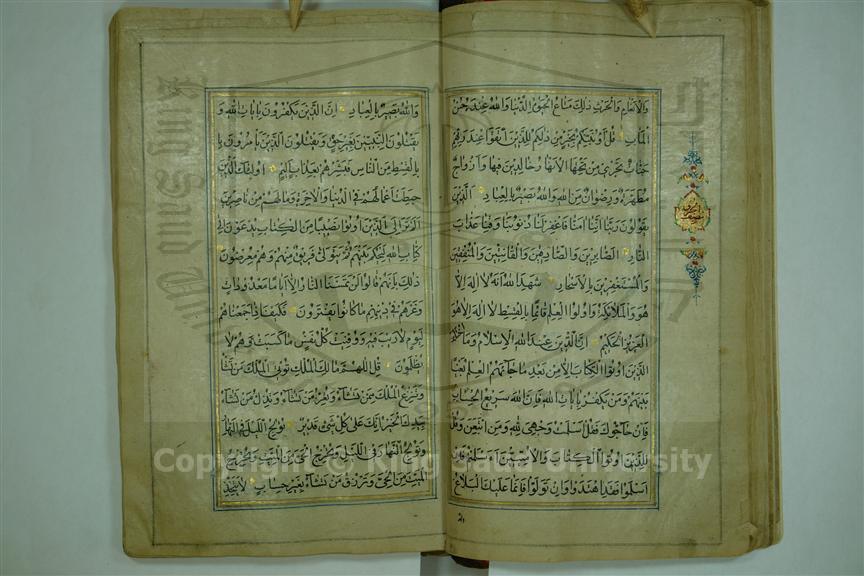 والانعام والحرث ذلك متاع الحيوة الدنيا والله عنده حسن
الماب قل اؤنبئكم بخير من ذلكم للذين اتقوا عند ربهم
جنات تجري من تحتها الانهار خالدين فيها وازواج
مطهرة ورضوان من الله والله بصير بالعباد الذين
يقولون ربنا اننا امنا فاغفر لنا ذنوبنا وقنا عذاب
النار الصابرين والصادقين والقانتين والمنفقين
والمستغفرين بالاسحار شهد الله انه لا اله الا
هو والملائكة واولوا العلم قائما بالقسط لا اله الا هو
العزيز الحكيم ان الدين عند الله الاسلام وما اختلف
الذين اوتوا الكتاب الا من بعد ما جائهم العلم بغيا
بينهم ومن يكفر بايات الله فان الله سريع الحساب
فان حاجوك فقل اسلمت وجهي لله ومن اتبعن وقل
للذين اوتوا الكتاب والاميين ءاسلمتم فان
اسلموا فقد اهتدوا وان تولوا فانما عليك البلاغ
والله بصير بالعباد ان الذين يكفرون بايات الله و
يقتلون النبيين بغير حق ويقتلون الذين يامرون
بالقسط من الناس فبشرهم بعذاب اليم اولئك الذين
حبطت اعمالهم في الدنيا والاخرة وما لهم من ناصرين
الم تر الى الذين اوتوا نصيبا من الكتاب يدعون الى
كتاب الله ليحكم بينهم ثم يتولى فريق منهم وهم معرضون
ذلك بانهم قالوا لن تمسنا النار الا اياما معدودات
وغرهم في دينهم ما كانوا يفترون فكيف اذا جمعناهم
ليوم لا ريب فيه ووفيت كل نفس ما كسبت وهم لا
يظلمون قل اللهم مالك الملك تؤتي الملك من تشاء
وتنزع الملك ممن تشاء وتعز من تشاء وتذل من تشاء
بيدك الخير انك على كل شيء قدير تولج الليل في النهار
وتولج النهار في الليل وتخرج الحي من الميت وتخرج
الميت من الحي وترزق من تشاء بغير حساب لا يتخذ
Copyright © King Saud University